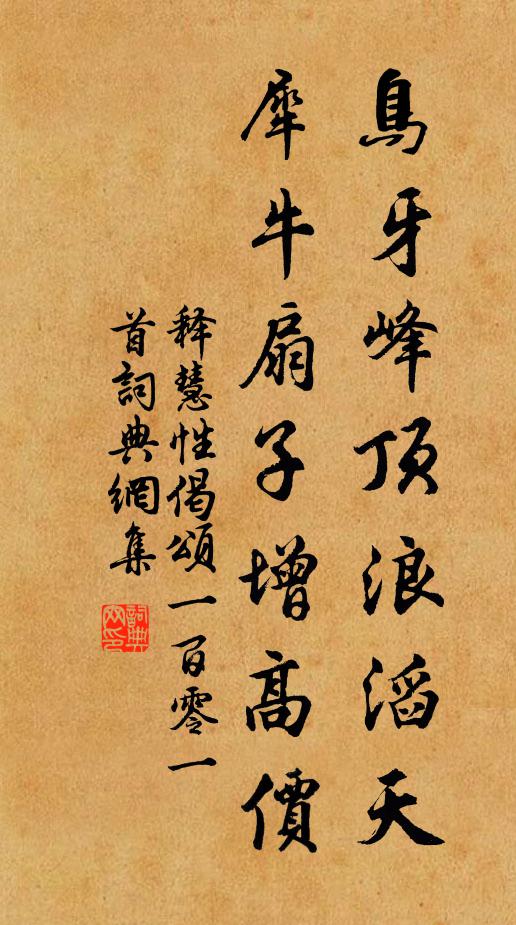 烏牙峰頂浪滔天
犀牛扇子增高價
釋慧性偈頌一百零一
首詞典網集
詞典网印